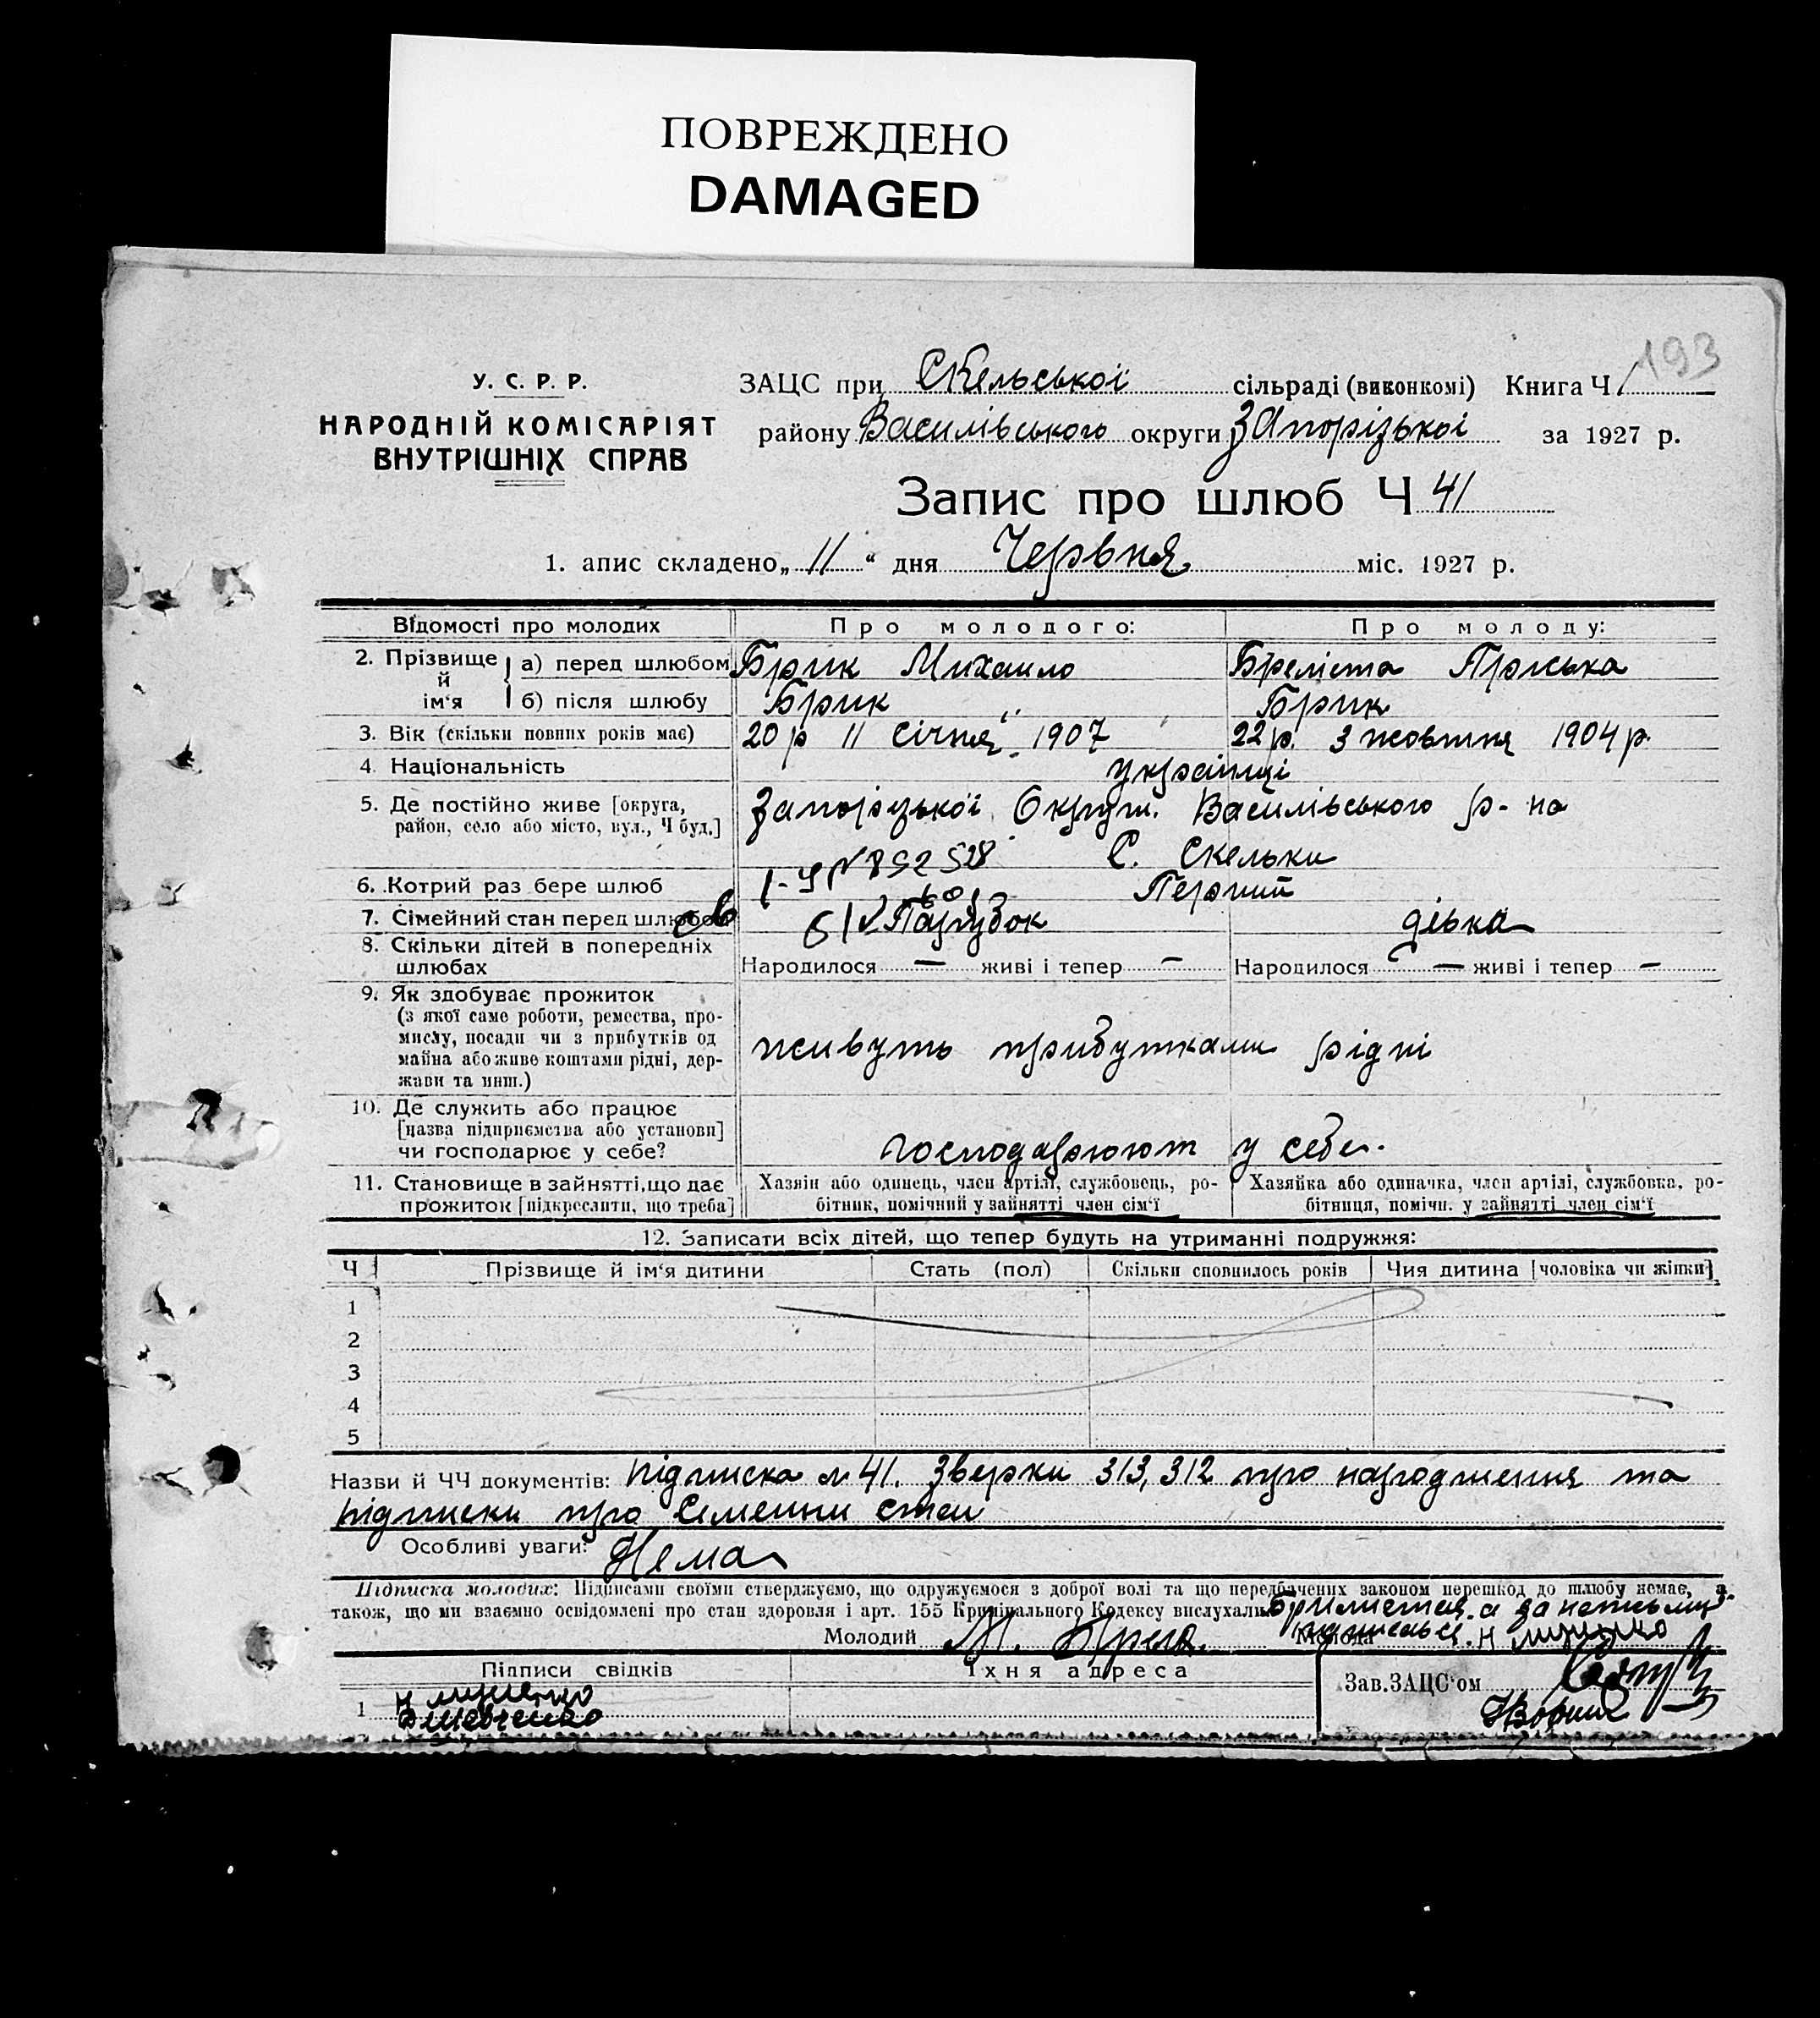 ПОВРЕЖДЕНО
DAMAGED
193
У. С. Р. Р.
НАРОДНІЙ КОМІСАРІЯТ
ВНУТРІШНІХ СПРАВ
ЗАЦС при Скельської сільраді (виконкомі) Книга Ч 1
району Василівського округи Запорізької за 1927 р.
Запис про шлюб Ч 41
1. апис складено „ 11 “ дня Червня міс. 1927 р.
Відомості про молодих Про молодого: Про молоду:
2. Прізвище й ім‘я а) перед шлюбом Брик Михаило Бреліста Прська
б) після шлюбу Брик „ Брик
3. Вік (скільки повних років має) 20 р 11 Січня 1907 22 р. 3 жовтня 1904 р.
4. Національність українці
5. Де постійно живе [округа, район, село або місто, вул., Ч буд.] Запорізької Округи. Василівського р-на
С. Скельки
1-ЧР № 892528
6. Котрий раз бере шлюб Перший
7. Сімейний стан перед шлюбом Парубок дівка
8. Скільки дітей в попередніх шлюбах Народилося — живі і тепер – Народилося — живі і тепер –
9. Як здобуває прожиток
(з якої саме роботи, ремества, про-
мислу, посади чи з прибутків од
майна або живе коштами рідні, дер-
жави та инш.) живуть прибутками рідні
10. Де служить або працює
[назва підприємства або установи]
чи господарює у себе? господарюют у себе.
11. Становище в зайнятті, що дає прожиток [підкреслити, що треба]
Хазяїн або одинець, член артілі, службовець, ро-
бітник, помічний у зайнятті член сім‘ї
Хазяйка або одиначка, член артілі, службовка, ро-
бітниця, помічн. у зайнятті член сім‘ї
12. Записати всіх дітей, що тепер будуть на утриманні подружжя:
Ч Прізвище й ім‘я дитини Стать (пол) Скільки сповнилось років Чия дитина [чоловіка чи жінки]
1
2
3
4
5
Назви й ЧЧ документів: підписка № 41. Зверки 313, 312 про народження та
підписки про Семейни стан
Особливі уваги: Нема
Підписка молодих: Підписами своїми стверджуємо, що одружуємося з доброї волі та що передбачених законом перешкод до шлюбу немає, а
також, що ми взаємно освідомлені про стан здоровля і арт. 155 Кримінального Кодексу вислухали.
Молодий М. Молода
Підписи свідків Їхня адреса Зав. ЗАЦС‘ом
1
Шевченко